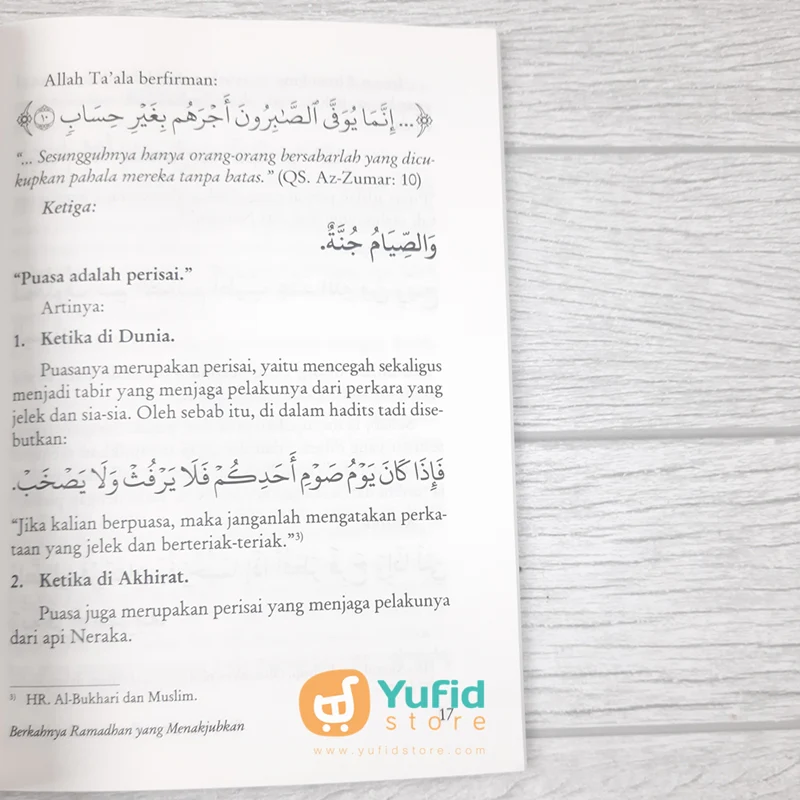 Allah Ta'ala berfirman:
﴿... إِنَّمَا يُوَفَّى ٱلصَّٰبِرُونَ أَجْرَهُم بِغَيْرِ حِسَابٍ ۝١٠﴾
"... Sesungguhnya hanya orang-orang bersabarlah yang dicu-
kupkan pahala mereka tanpa batas." (QS. Az-Zumar: 10)
Ketiga:
وَالصِّيَامُ جُنَّةٌ.
"Puasa adalah perisai."
Artinya:
1. Ketika di Dunia.
Puasanya merupakan perisai, yaitu mencegah sekaligus
menjadi tabir yang menjaga pelakunya dari perkara yang
jelek dan sia-sia. Oleh sebab itu, di dalam hadits tadi dise-
butkan:
فَإِذَا كَانَ يَوْمُ صَوْمِ أَحَدِكُمْ فَلَا يَرْفُثْ وَلَا يَصْخَبْ.
"Jika kalian berpuasa, maka janganlah mengatakan perka-
taan yang jelek dan berteriak-teriak."3)
2. Ketika di Akhirat.
Puasa juga merupakan perisai yang menjaga pelakunya
dari api Neraka.
3) HR. Al-Bukhari dan Muslim.
Berkahnya Ramadhan yang Menakjubkan
17
Yufid
store
www.yufidstore.com